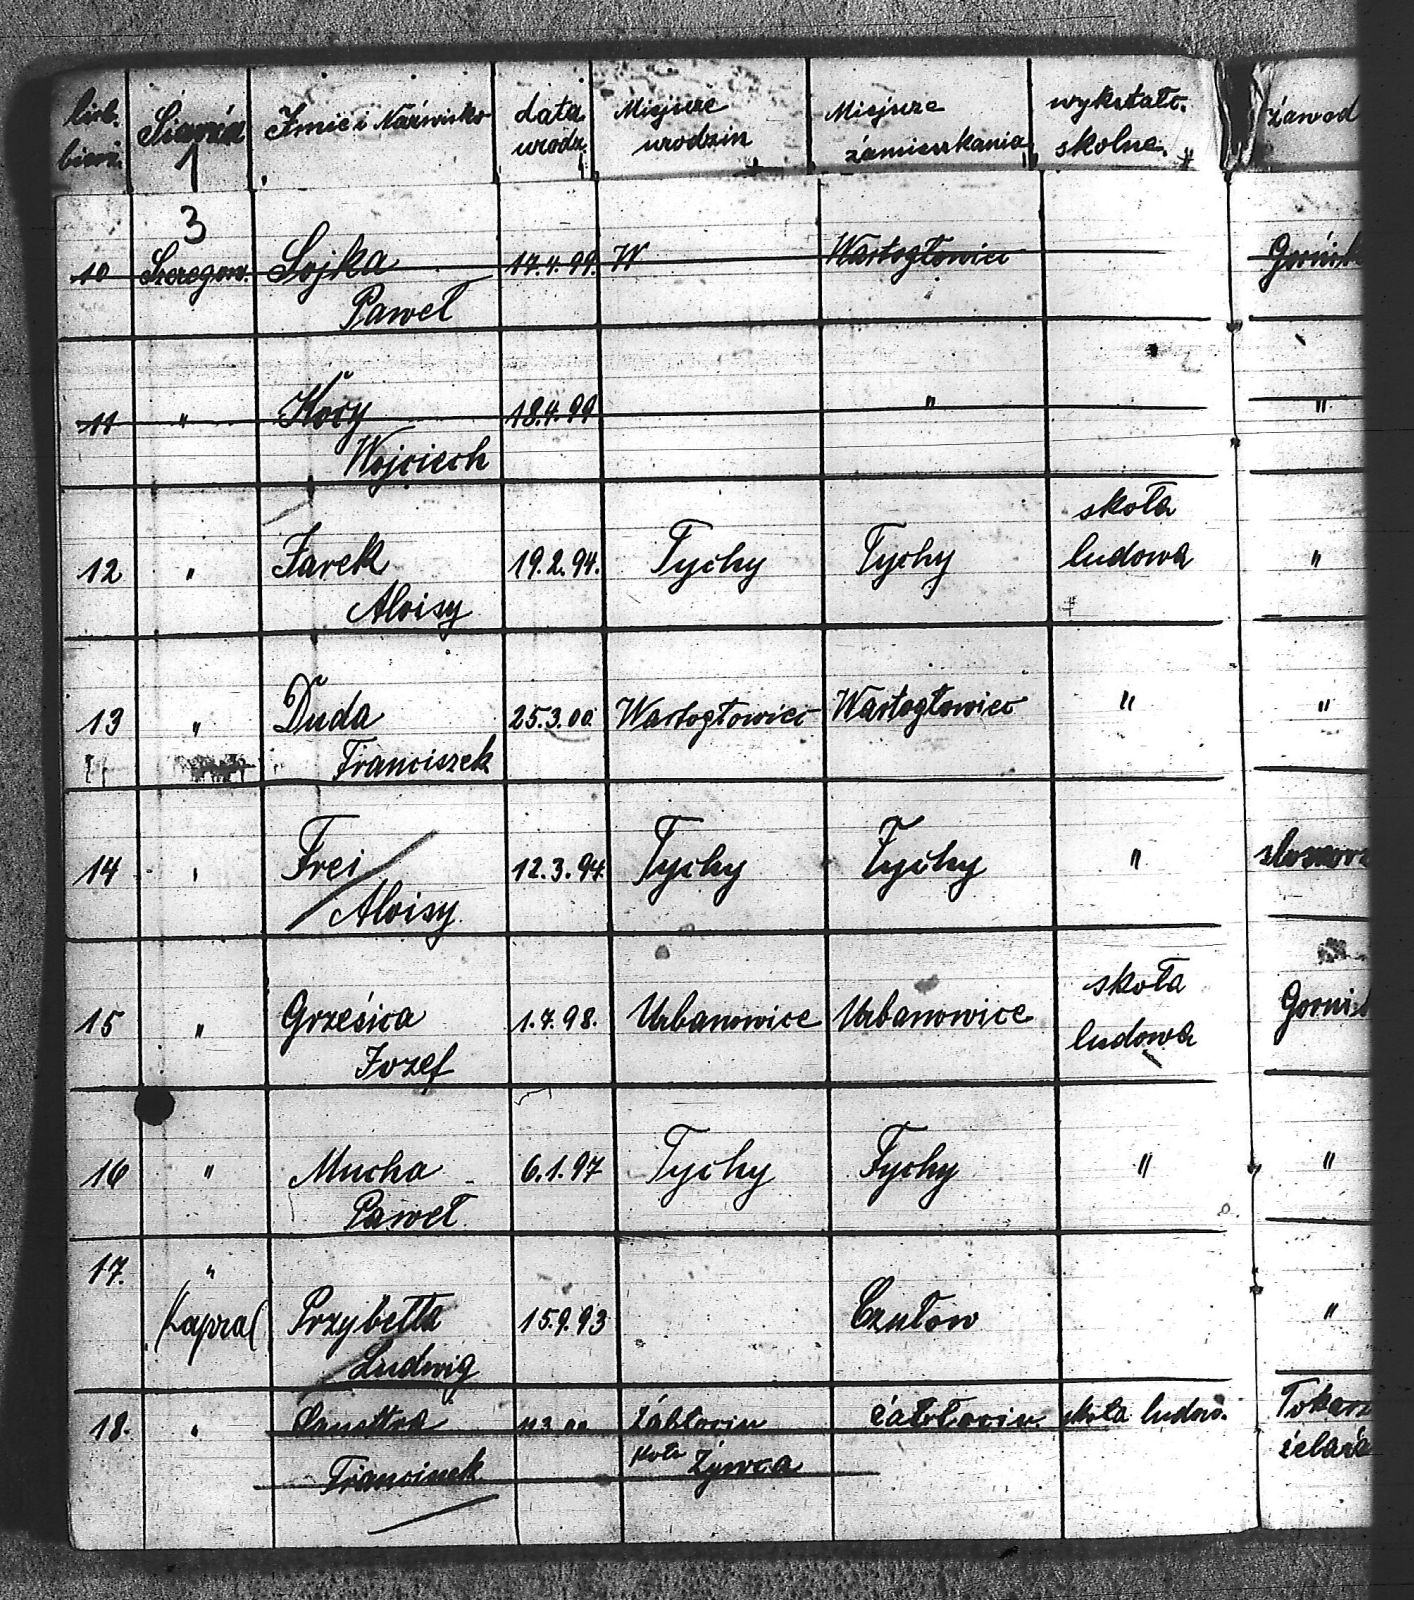 licb. bierz. Szarża Imie i Nazwisko data urodz. Miejsce urodzin Miejsce zamieszkania wykształc. skolne. zawod
1
3
10 Szeregow. Sojka Paweł 17.4.99. W Wartogłowiec Gornik
11 " Kocy Wojciech 18.4.99 " "
12 " Jarek Aloisy 19.2.94. Tychy Tychy skoła ludowa "
13 " Duda Franciszek 25.3.00 Wartogłowiec Wartogłowiec " "
14 " Frei Aloisy 12.3.94 Tychy Tychy "
15 " Grzesica Jozef 1.7.98. Urbanowice Urbanowice skoła ludowa Gornik
16 " Mucha Paweł 6.1.97 Tychy Tychy " "
17. " Kapral Przybełta Ludwig 15.9.93 Czułow "
18. " Francisek 11.3.00 Zabłociu koło Żywca Zabłociu skoła ludow. Tokarz